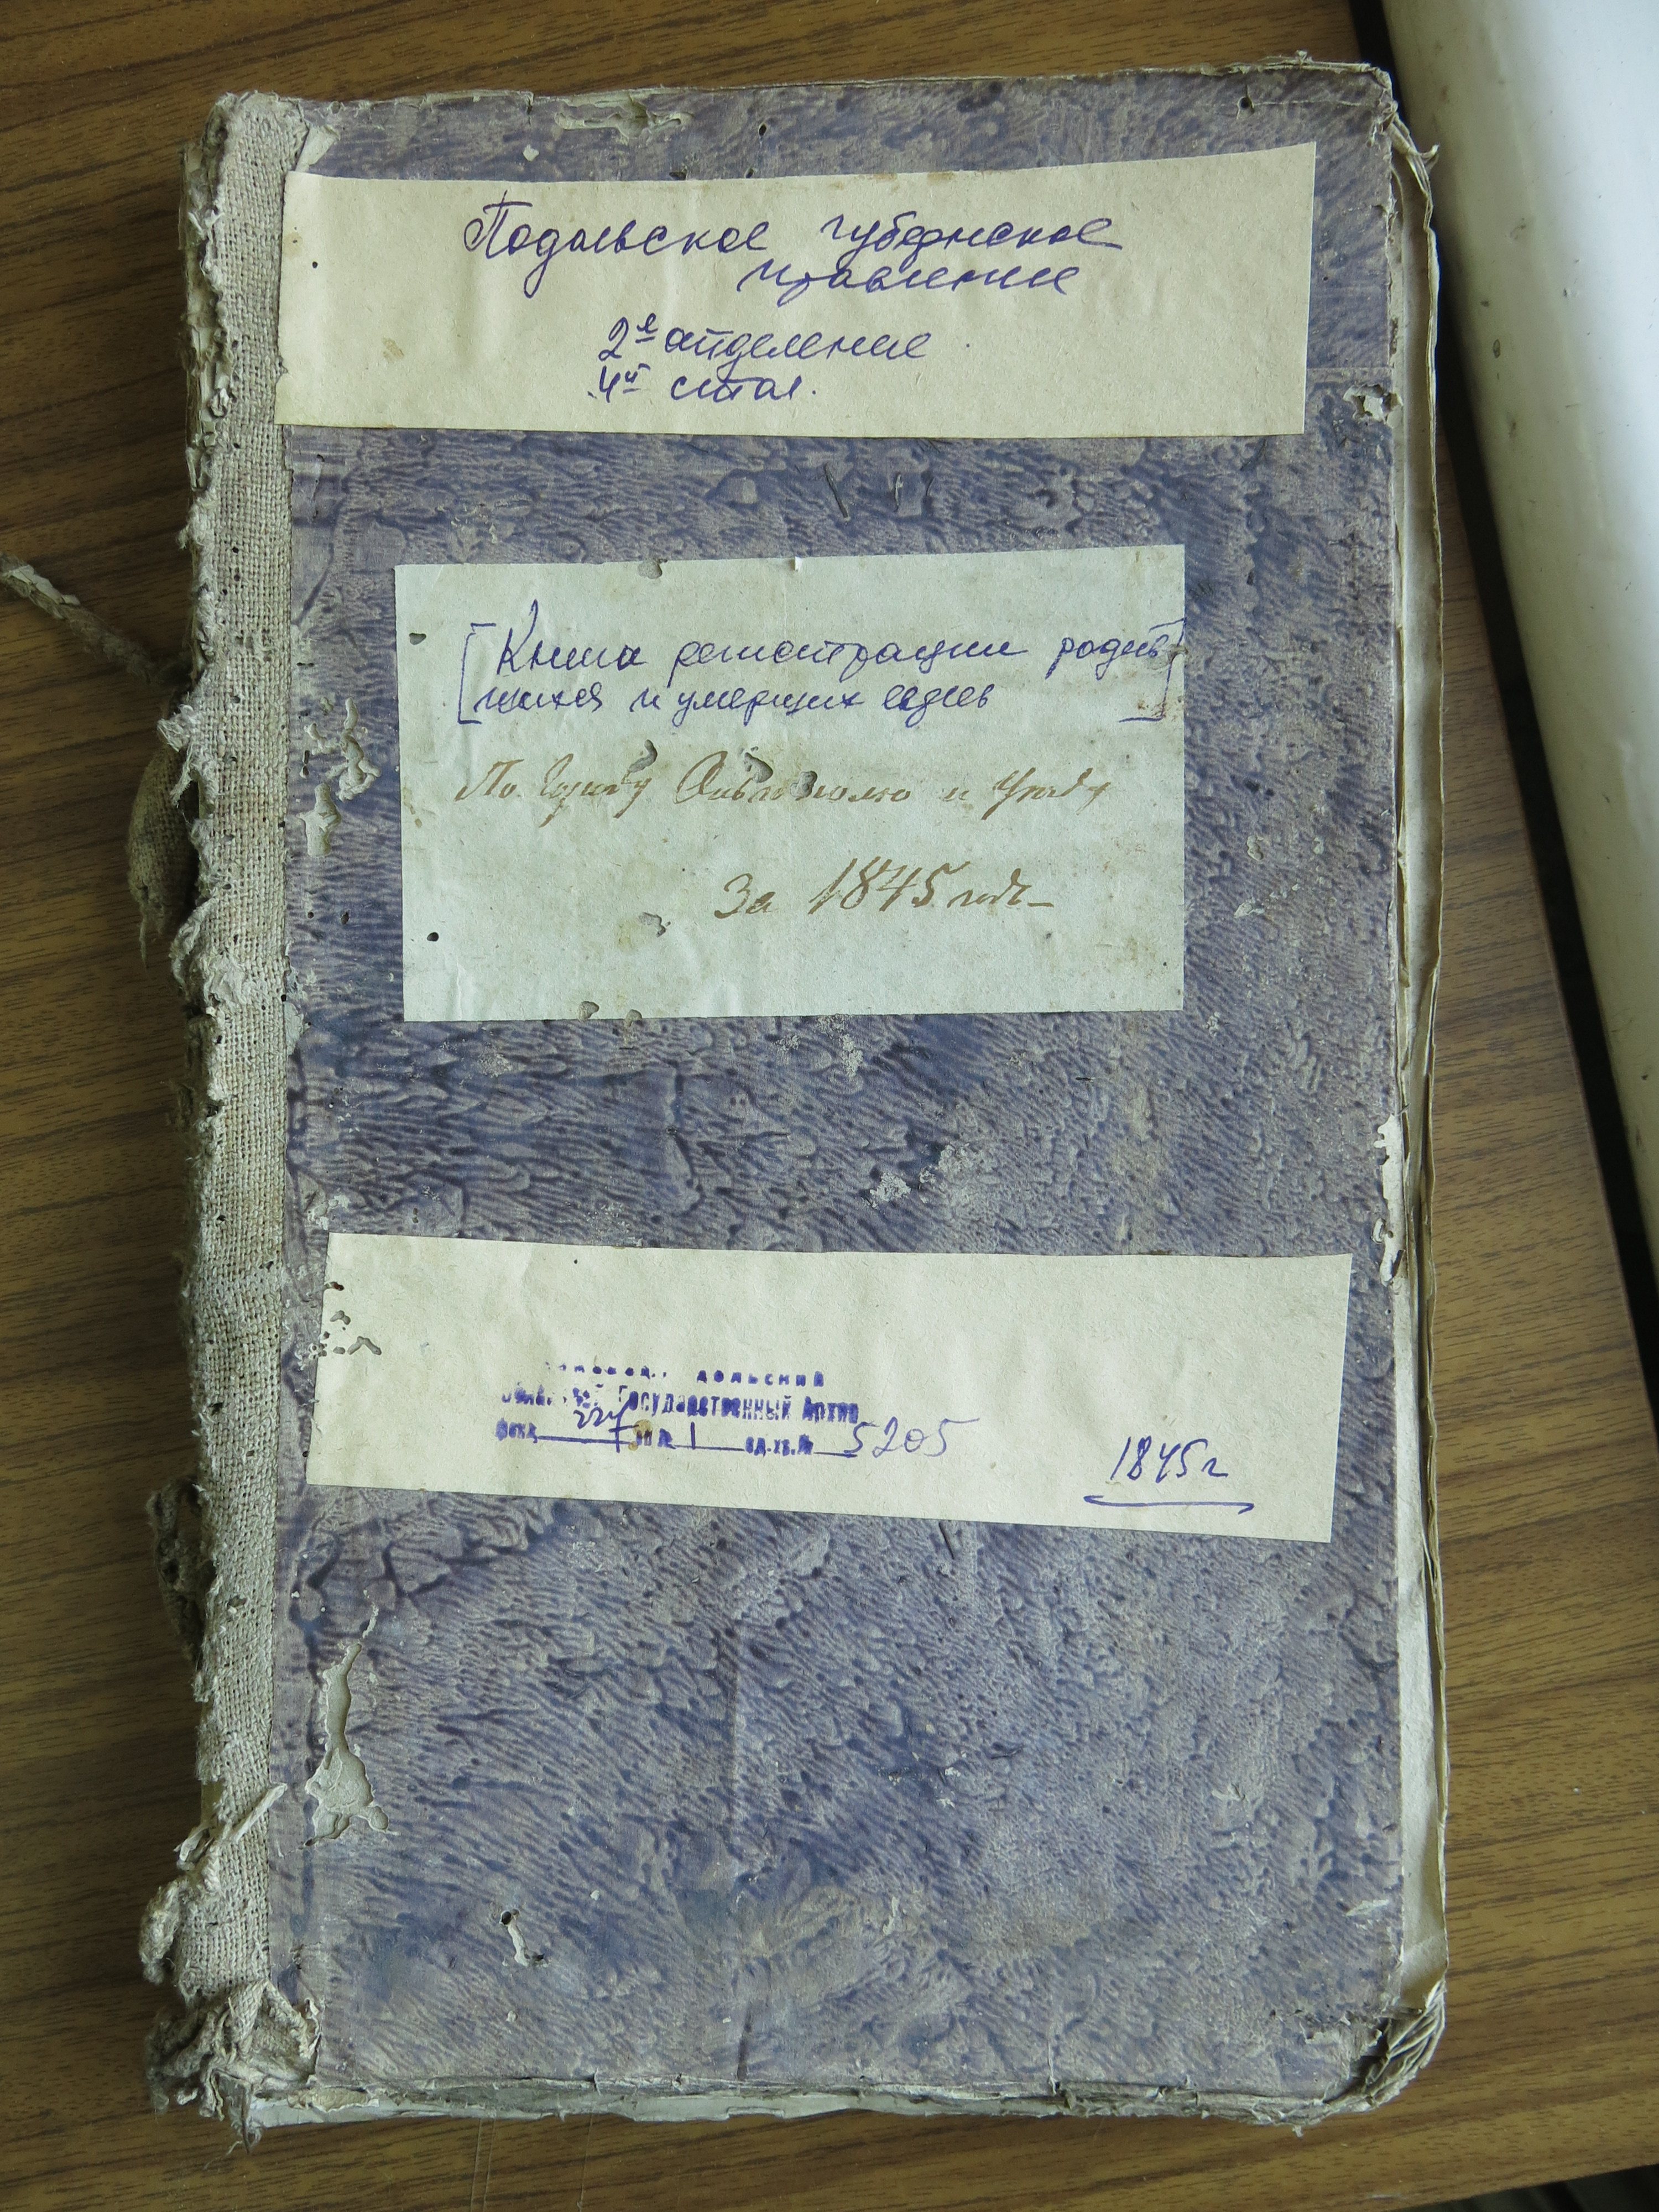 Подольское губернское
правление
2е отделение
4й стол.
[Книга регистрации родив-
шихся и умерших евреев]
По городу Ольгополю и Уезду
За 1845 годъ
дольский
Государственный Архив
фонд 227 оп. 1 ед.хр.№ 5205
1845 г